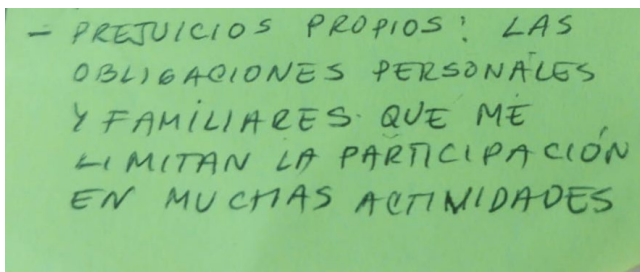 - PREJUICIOS PROPIOS: LAS
OBLIGACIONES PERSONALES
Y FAMILIARES QUE ME
LIMITAN LA PARTICIPACIÓN
EN MUCHAS ACTIVIDADES